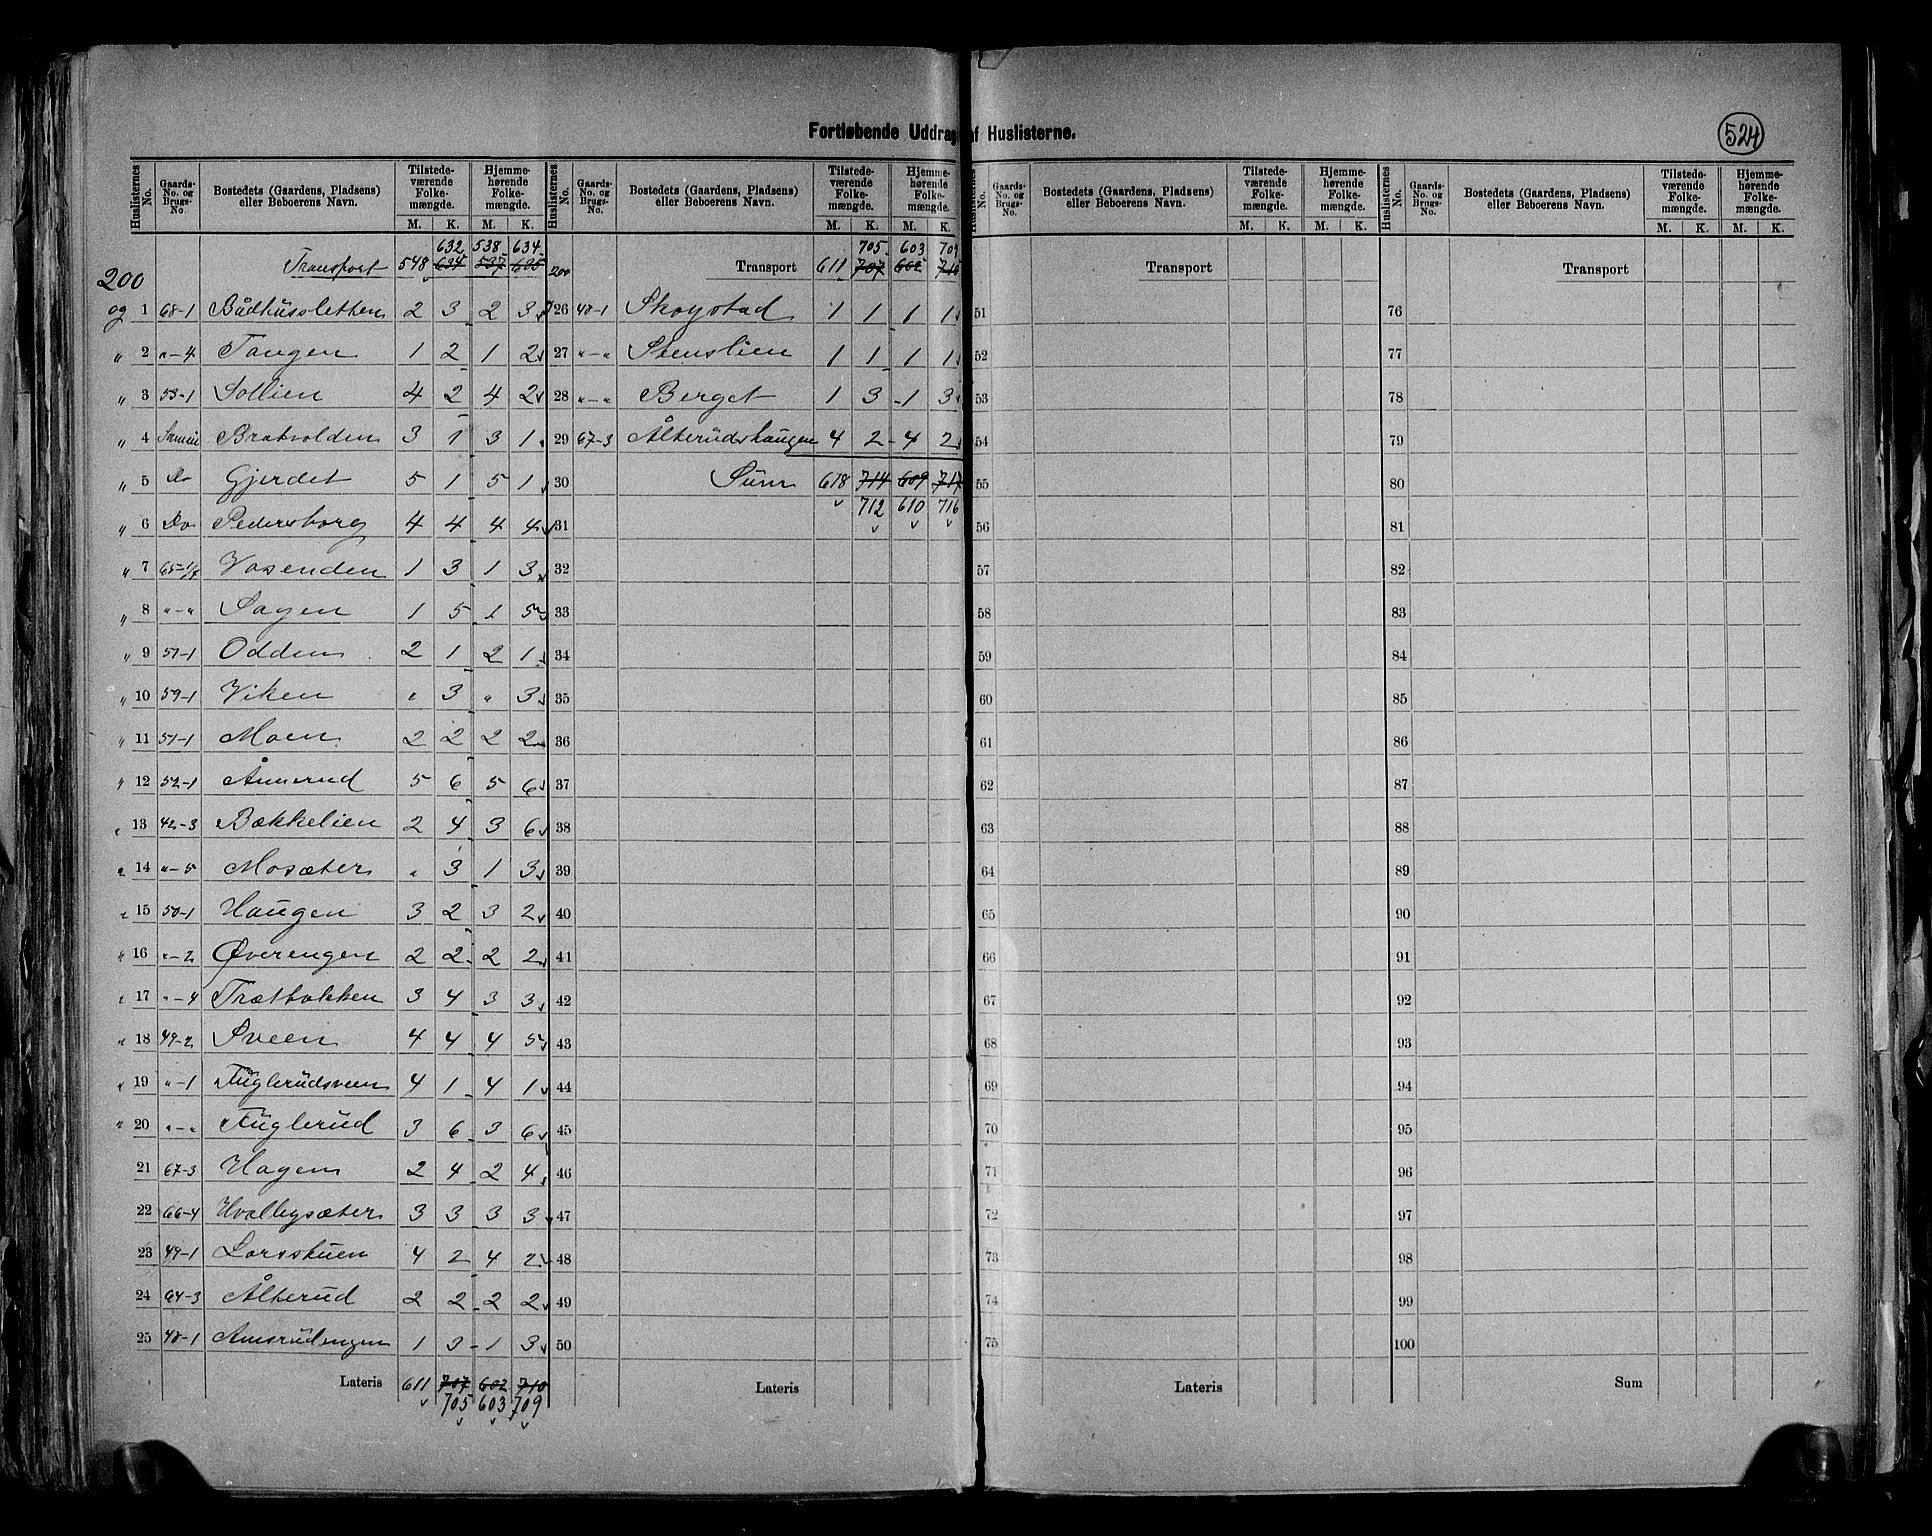 Fortløbende Uddrag af Huslisterne.
524
Huslisternes No. Gaards-No. og Brugs-No. Bostedets (Gaardens, Pladsens) eller Beboerens Navn. Tilstedeværende Folkemængde. M. K. Hjemmehørende Folkemængde. M. K.
632 538 634
Transport 548 634 537 635
200
og 1 68-1 Bådhussletten 2 3 2 3
" 2 "-4 Tangen 1 2 1 2
" 3 53-1 Sollien 4 2 4 2
" 4 Samme Bratvolden 3 1 3 1
" 5 Do Gjerdet 5 1 5 1
" 6 Do Pedersborg 4 4 4 4
" 7 65-1/4 Vasenden 1 3 1 3
" 8 "-" Sagen 1 5 1 5
" 9 57-1 Odden 2 1 2 1
" 10 59-1 Viken " 3 " 3
" 11 51-1 Moen 2 2 2 2
" 12 52-1 Åmerud 5 6 5 6
" 13 42-3 Bækkelien 2 4 3 6
" 14 "-5 Mosæter " 3 1 3
" 15 50-1 Haugen 3 2 3 2
" 16 "-2 Øverengen 2 2 2 2
" 17 "-4 Trætbakken 3 4 3 3
" 18 49-2 Sveen 4 4 4 5
" 19 "-1 Fuglerudsveen 4 1 4 1
" 20 "-" Fuglerud 3 6 3 6
21 67-3 Hagen 2 4 2 4
22 66-4 Hvalbysæter 3 3 3 3
23 49-1 Larsstuen 4 2 4 2
24 64-3 Ålterud 2 2 2 2
25 48-1 Amsrudengen 1 3 1 3
Lateris 611 707 602 710
705 603 709
Huslisternes No. Gaards-No. og Brugs-No. Bostedets (Gaardens, Pladsens) eller Beboerens Navn. Tilstedeværende Folkemængde. M. K. Hjemmehørende Folkemængde. M. K.
705 603 709
200 Transport 611 707 602 710
26 40-1 Skogstad 1 1 1 1
27 "-" Stenslien 1 1 1 1
28 "-" Berget 1 3 1 3
29 67-3 Ålterudshaugen 4 2 4 2
30 Sum 618 714 609 717
712 610 716
31
32
33
34
35
36
37
38
39
40
41
42
43
44
45
46
47
48
49
50
Lateris
Huslisternes No. Gaards-No. og Brugs-No. Bostedets (Gaardens, Pladsens) eller Beboerens Navn. Tilstedeværende Folkemængde. M. K. Hjemmehørende Folkemængde. M. K.
Transport
51
52
53
54
55
56
57
58
59
60
61
62
63
64
65
66
67
68
69
70
71
72
73
74
75
Lateris
Huslisternes No. Gaards-No. og Brugs-No. Bostedets (Gaardens, Pladsens) eller Beboerens Navn. Tilstedeværende Folkemængde. M. K. Hjemmehørende Folkemængde. M. K.
Transport
76
77
78
79
80
81
82
83
84
85
86
87
88
89
90
91
92
93
94
95
96
97
98
99
100
Sum